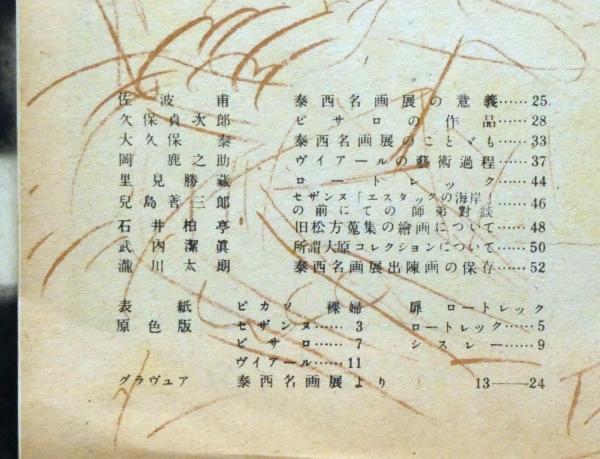 佐波甫 泰西名画展の意義……25
久保貞次郎 ピサロの作品……28
大久保泰 泰西名画展のことゞも……33
岡鹿之助 ヴイアールの藝術過程……37
里見勝蔵 ロートレック……44
兒島善三郎 セザンヌ「エスタックの海岸」の前にての師弟對談……46
石井柏亭 旧松方蒐集の繪画について……48
武内潔眞 所謂大原コレクションについて……50
瀧川太朗 泰西名画展出陳画の保存……52
表紙 ピカソ 裸婦 扉 ロートレック
原色版 セザンヌ……3 ロートレック……5
ピサロ……7 シスレー……9
ヴイアール……11
グラヴュア 泰西名画展より 13——24